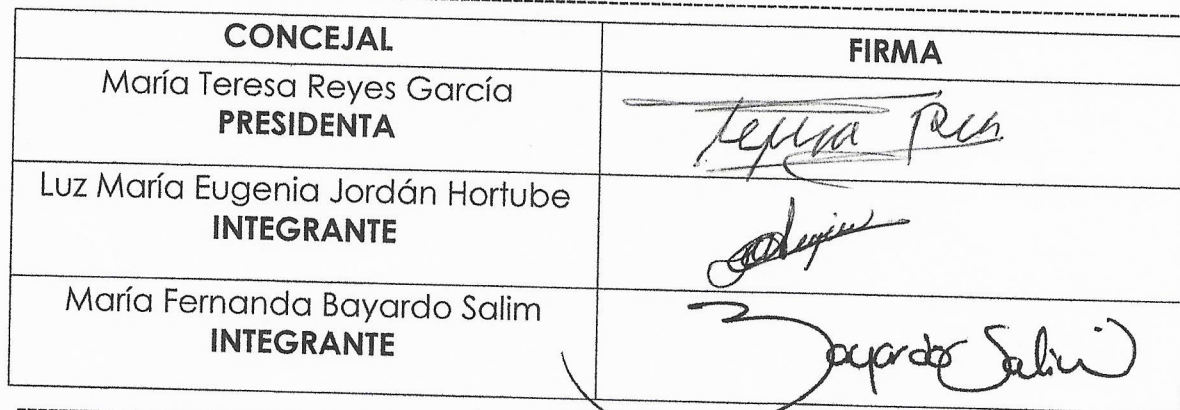 CONCEJAL FIRMA
María Teresa Reyes García
PRESIDENTA
Luz María Eugenia Jordán Hortube
INTEGRANTE
María Fernanda Bayardo Salim
INTEGRANTE
Bayardo Salim